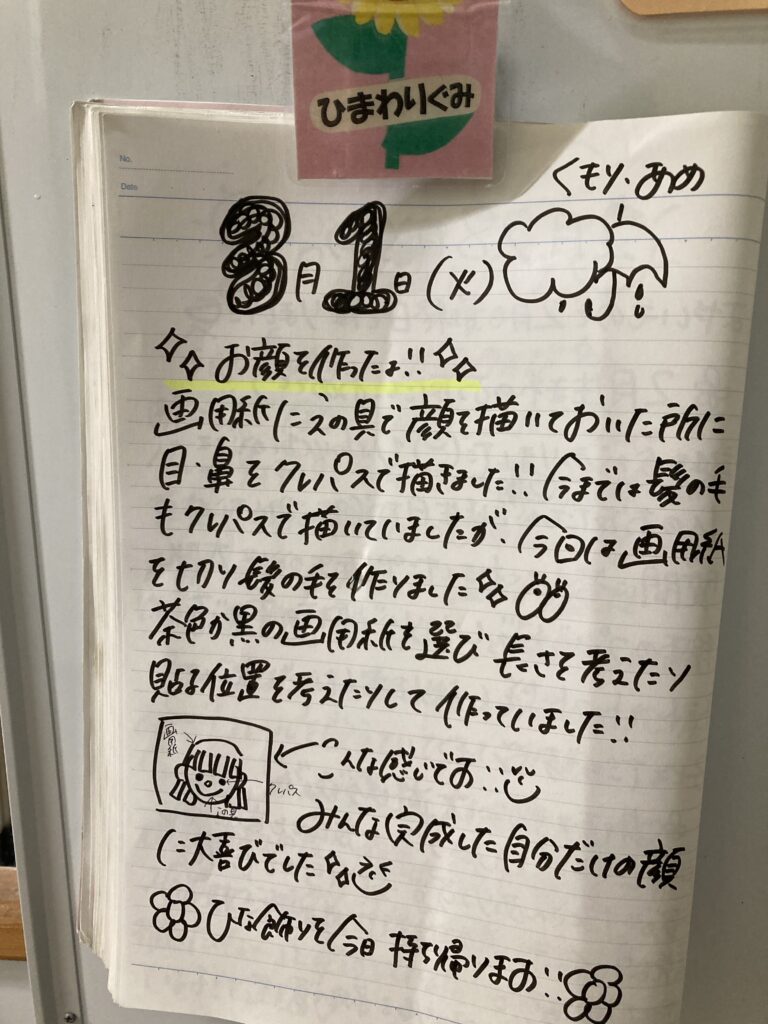 ひまわりぐみ
No.
Date
くもり、あめ
3月1日(火)
お顔を作ったよ!!
画用紙にえの具で顔を描いておいた所に
目・鼻をクレパスで描きました!!今までは髪の毛
もクレパスで描いていましたが、今日は画用紙
を切り髪の毛を作りました
茶色か黒の画用紙を選び長さを考えたり
貼る位置を考えたりして作っていました!!
画用紙
クレパス
えの具
こんな感じです!!
みんな完成した自分だけの顔
に大喜びでした
ひな飾りを今日持ち帰ります!!